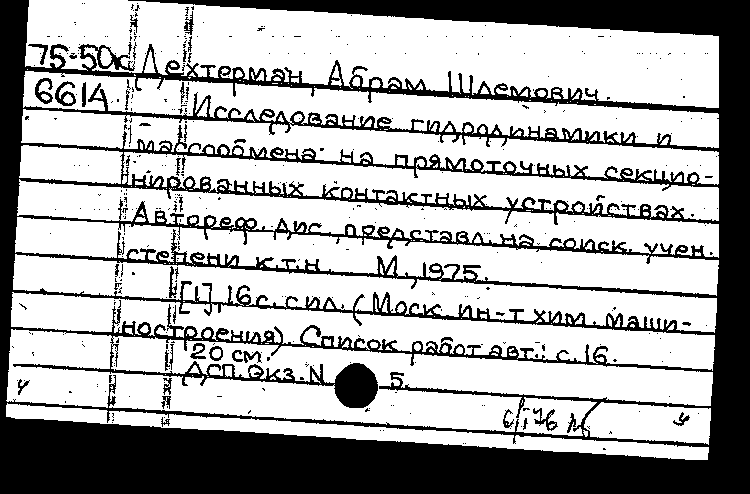 75-50к Лехтерман, Абрам Шлемович.
6614 Исследование гидродинамики и
массообмена на прямоточных секцио-
нированных контактных устройствах.
Автореф. дис., представл. на соиск. учен.
степени к.т.н. М., 1975.
[1], 16 с. с ил. (Моск. ин-т хим. маши-
ностроения). Список работ авт.: с. 16.
20 см.
Дсп. Экз. N 5.